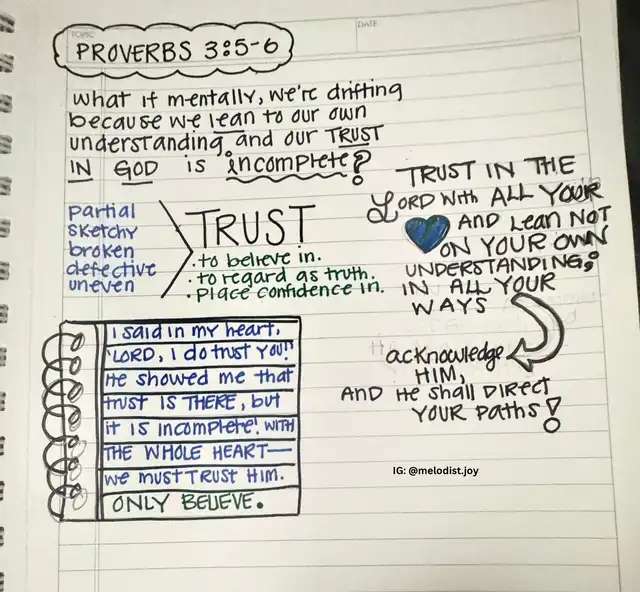 TOPIC
DATE
PROVERBS 3:5-6
what if mentally, we're drifting
because we lean to our own
understanding and our TRUST
IN GOD is incomplete?
partial
sketchy
broken
defective
uneven
TRUST
• to believe in.
• to regard as truth.
• Place confidence in.
TRUST IN THE
LORD With ALL YOUR
AND Lean NOT
ON YOUR OWN
UNDERSTANDING;
IN ALL YOUR
WAYS
acknowledge
HIM,
AND He SHALL DIRECT
YOUR PATHS!
I said in my heart,
"LORD, I do trust YOU!"
He showed me that
trust IS THERE, but
it IS incomplete! WITH
THE WHOLE HEART—
we must TRUST HIM.
ONLY BELIEVE.
IG: @melodist.joy